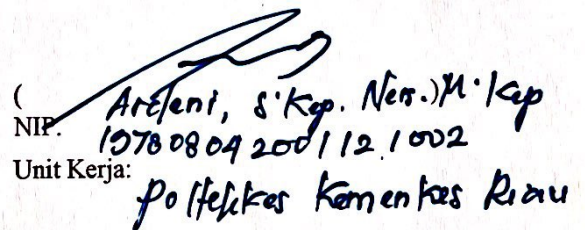 ( Ardeni, S.Kep. Ners.) M.Kep
NIP. 19780804 200112 1002
Unit Kerja:
Poltekkes Kemenkes Riau